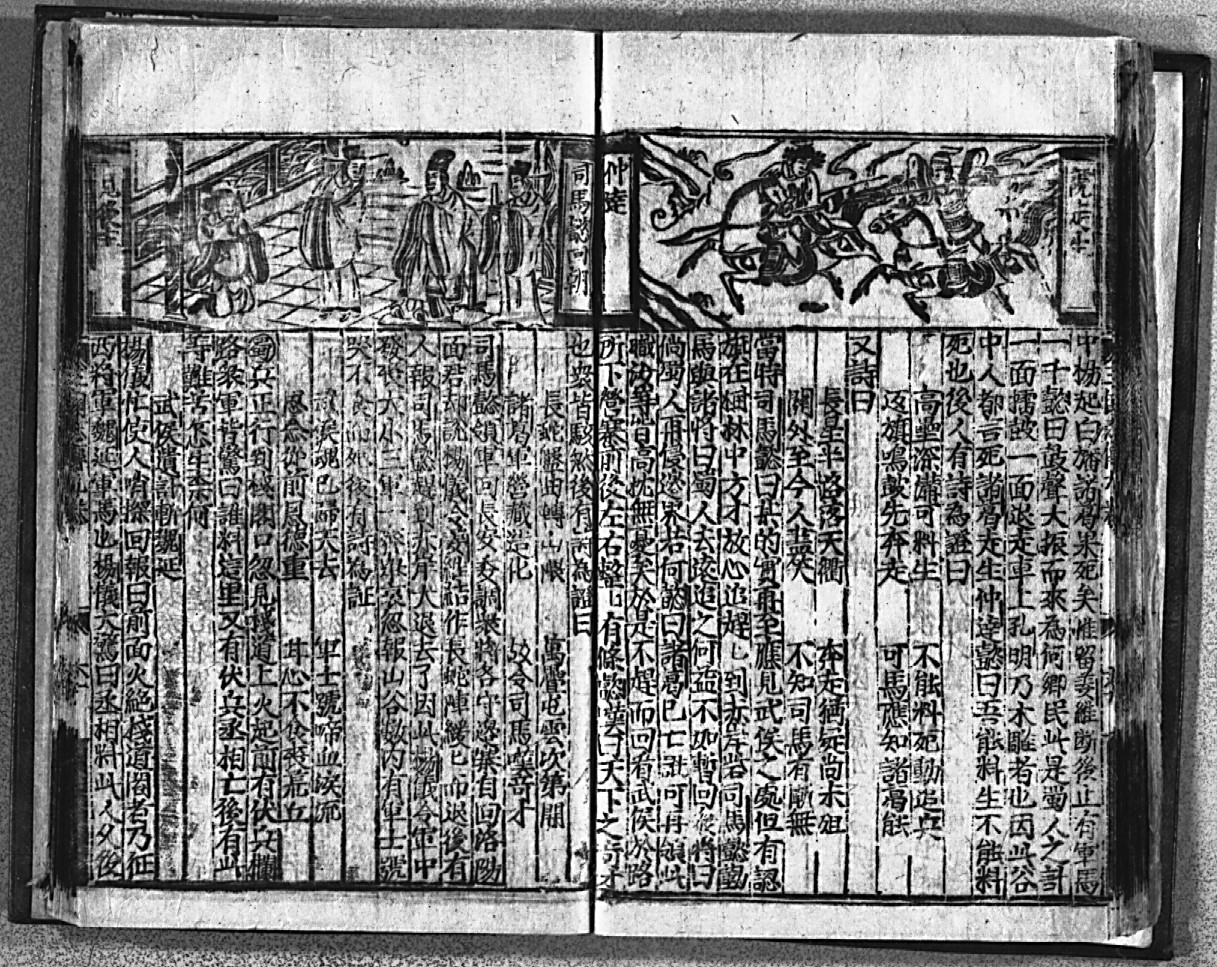 仲達
中揚起白旛諸葛果死矣惟留姜維断後止有軍馬
一千懿曰鼓聲大振而來為何鄉民此是蜀人之計
一面擂鼓一面退走車上孔明乃木雕者也因此谷
中人都言死諸葛走生仲達懿曰吾能料生不能料
死也後人有詩為證曰
高壘深溝可料生
不能料死動追兵
返旗鳴鼓先奔走
司馬應知諸葛能
又詩曰
長星半落天衢
奔走猶疑尚未殂
關外至今人盡笑
不知司馬有顱無
當時司馬懿曰某的實再至應見武侯之處但有認
旗在林中方才放心追趕匕到赤岸若司馬懿勒
馬與諸將曰蜀人去遠追之何益不如暫回衆將曰
倘蜀人再侵邊界若何懿曰諸葛已亡誰可再領此
職汝等皆高枕無憂矣於是不趕而回看武侯於路
所下營寨前後左右整匕有條懿嘆曰天下之奇才
司馬懿回朝
也衆皆駭然後有詩為證曰
長蛇盤曲轉山
萬疊屯雲次第開
諸葛軍營藏造化
致令司馬嘆奇才
司馬懿領軍回長安委調衆將各守邊寨自回洛陽
面君却說楊儀令姜維結作長蛇陣緩匕而退後有
人報司馬懿趕到赤岸大退去了因此楊儀令軍中
發喪大小三軍一齊舉哀忽報山谷内有軍士號
哭不食而死後有詩為証
淚魂已歸天去
軍士號啼血淚流
思念從前恩德重
甘心不食喪荒丘
蜀兵正行到棧閣口忽見棧道上火起前有伏兵攔
路衆軍皆驚曰誰料這里又有伏兵丞相亡後有此
等難苦怎生奈何
武侯遺計斬魏延
楊儀忙使人哨探回報曰前面火絕棧道閣者乃征
西將軍魏延軍馬也楊儀大驚曰丞相料此人久後